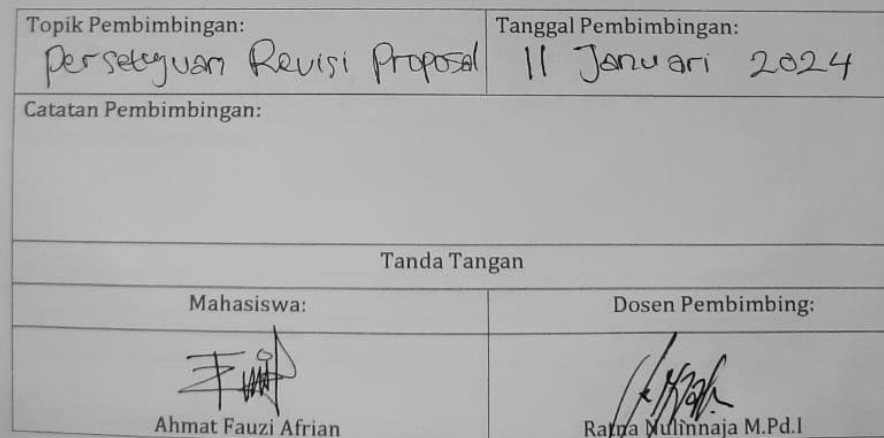 Topik Pembimbingan:
Persetujuan Revisi Proposal
Tanggal Pembimbingan:
11 Januari 2024
Catatan Pembimbingan:
Tanda Tangan
Mahasiswa:
Dosen Pembimbing:
Ahmat Fauzi Afrian
Ratna Nulinnaja M.Pd.I